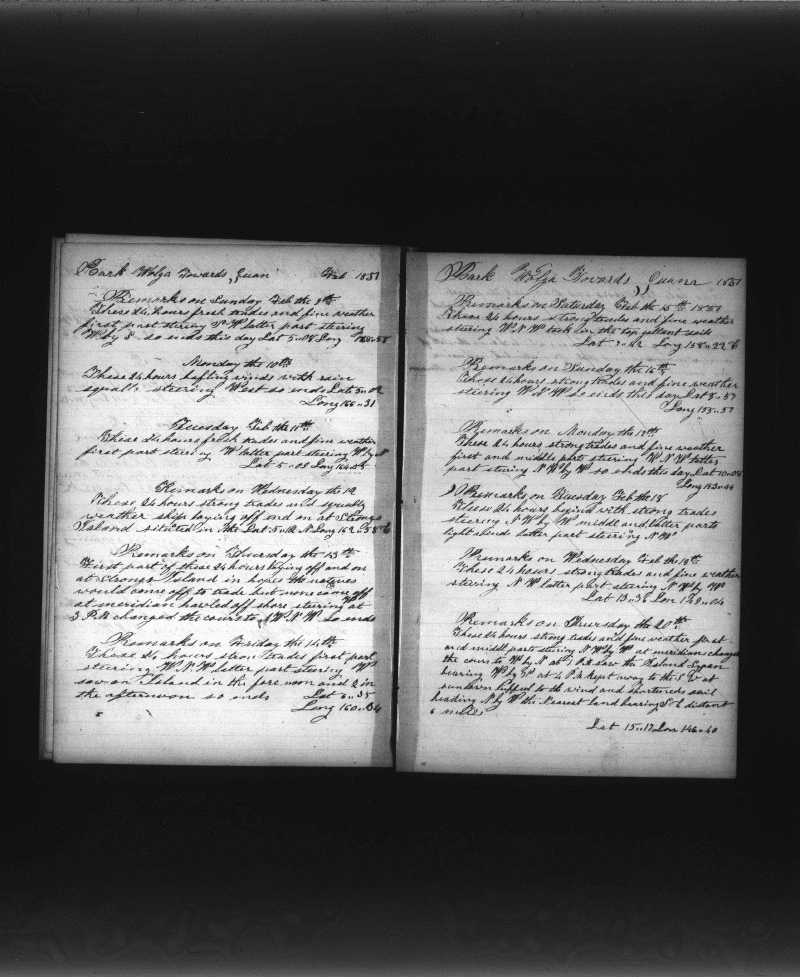 Bark Wolga Towards Guan Feb 1851
Remarks on Sunday Feb the 9th
These 24 hours fresh trades and fine weather
first part steering S W latter part steering
W by S so ends this day Lat 5.08 Long
Monday the 10th
These 24 hours baffling winds with rain
squalls steering West so ends Lat 5.02
Long 166.31
Tuesday Feb the 11th
These 24 hours fresh trades and fine weather
first part steering W latter part steering W by N
Lat 5.08 Long
Remarks on Wednesday the 12
These 24 hours strong trades and squally
weather ship laying off and on at Strongs
Island situated in the Lat 5.12 N Long 162.58 E
Remarks on Thursday the 13th
First part of these 24 hours laying off and on
at Strongs Island in hopes the natives
would come off to trade but none came off
at meridian hawled off shore steering at
3 P.M changed the course to W N W so ends
Remarks on Friday the 14th
These 24 hours stron trades first part
steering W N W latter part steering W
saw an Island in the fore noon and 2 in
the afternoon so ends Lat 6.35
Long 160.34
Bark Wolga Towards Guann 1851
Remarks on Saturday Feb the 15th 1851
These 24 hours strong trades and fine weather
steering W N W took in the top gallant sails
Lat 7.12 Long 158.22 E
Remarks on Sunday the 16th
These 24 hours strong trades and fine weather
steering W N W so ends this day Lat 8.57
Long 155.57
Remarks on Monday the 17th
These 24 hours strong trades and fine weather
first and middle parts steering W N W latter
part steering N W by W so ends this day Lat 10.08
Long 153.44
Remarks on Tuesday Feb the 18
These 24 hours begins with strong trades
steering N W by W middle and latter parts
light winds latter part steering N W
Remarks on Wednesday Feb the 19th
These 24 hours strong trades and fine weather
steering N W latter part steering N W by W
Lat 13.36 Lon 149.04
Remarks on Thursday the 20th
These 24 hours strong trades and fine weather first
and middle parts steering N W by W at meridian changed
the cours to W by N at 1 P.M saw the Island Sypan
bearing W by S at 4 P.M kept away to the S W at
sundown luffed to the wind and shortened sail
heading N by W the nearest land bearing S E distant
6 miles
Lat 15.17 Lon 146.40